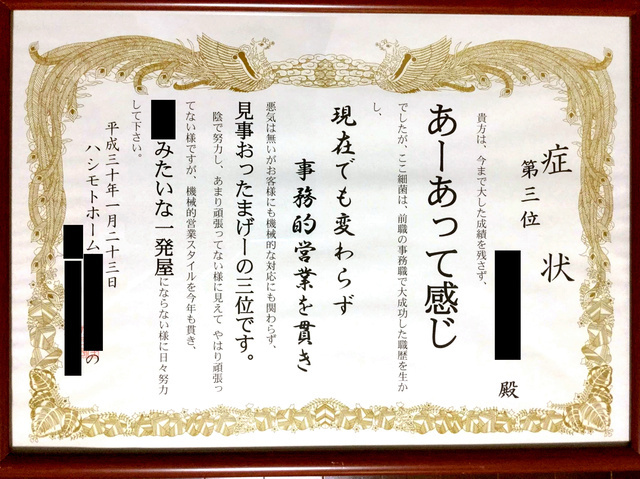 症状
第三位
殿
貴方は、今まで大した成績を残さず、
あーあって感じ
でしたが、ここ細菌は、前職の事務職で大成功した職歴を生か
し、
現在でも変わらず
事務的営業を貫き
悪気は無いがお客様にも機械的な対応にも関わらず、
見事おったまげーの三位です。
陰で努力し、あまり頑張ってない様に見えて やはり頑張っ
てない様ですが、機械的営業スタイルを今年も貫き、
みたいな一発屋にならない様に日々努力
して下さい。
平成三十年一月二十三日
ハシモトホーム
の